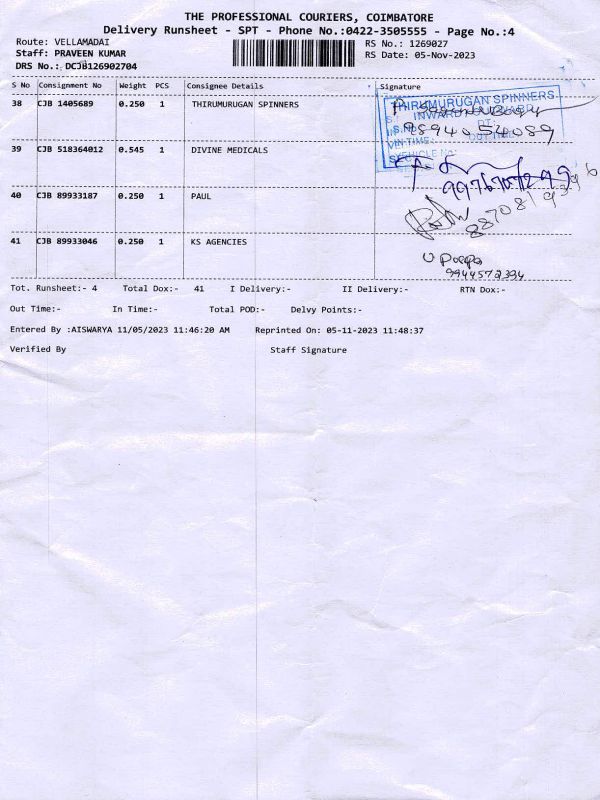 THE PROFESSIONAL COURIERS, COIMBATORE
Delivery Runsheet - SPT - Phone No.:0422-3505555 - Page No.:4
Route: VELLAMADAI RS No.: 1269027
Staff: PRAVEEN KUMAR RS Date: 05-Nov-2023
DRS No.: DCJB126902704
S No Consignment No Weight PCS Consignee Details Signature
38 CJB 1405689 0.250 1 THIRUMURUGAN SPINNERS
THIRUMURUGAN SPINNERS
INWARD
9894054089
VEHICLE No:
39 CJB 518364012 0.545 1 DIVINE MEDICALS
40 CJB 89933187 0.250 1 PAUL
8870819396
41 CJB 89933046 0.250 1 KS AGENCIES
9944572394
Tot. Runsheet:- 4 Total Dox:- 41 I Delivery:- II Delivery:- RTN Dox:-
Out Time:- In Time:- Total POD:- Delvy Points:-
Entered By :AISWARYA 11/05/2023 11:46:20 AM Reprinted On: 05-11-2023 11:48:37
Verified By Staff Signature